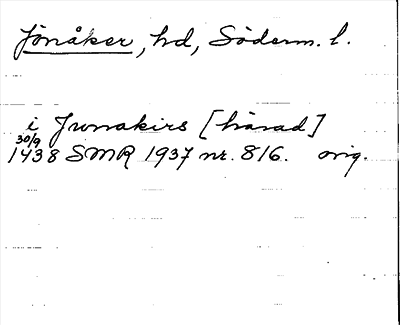 Jönåker, hd, Söderm. l.
i Junakirs [härad]
30/9
1438 SMR 1937 nr. 816. orig.